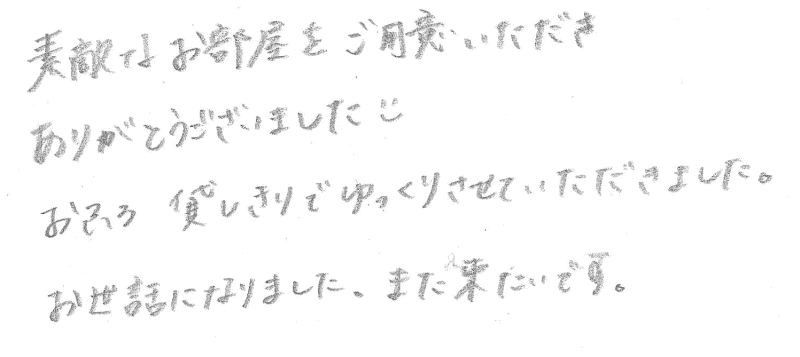 素敵なお部屋をご用意いただき
ありがとうございました
おふろ 貸しきりでゆっくりさせていただきました。
お世話になりました、また来たいです。